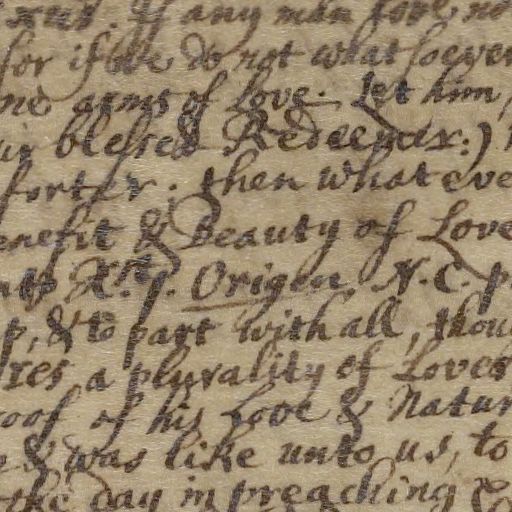 If any man love no
for if we do not whatsoever
arms of Love. Let him
blessed Redeemer:)
forter; then whateve
enefit & Beauty of Love
Xts. Origen N. C. p
p, & to part with all, thou
res a plurality of Loves
oof of his Love & Natur
e & was like unto us, to
the day in preaching